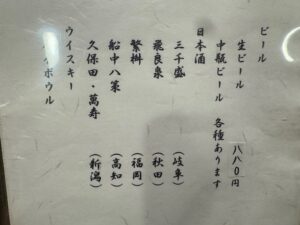 ビール
生ビール 八八〇円
中瓶ビール 各種あります
日本酒
三千盛 （岐阜）
飛良泉 （秋田）
繁桝 （福岡）
船中八策 （高知）
久保田・萬寿 （新潟）
ウイスキー
ハイボウル